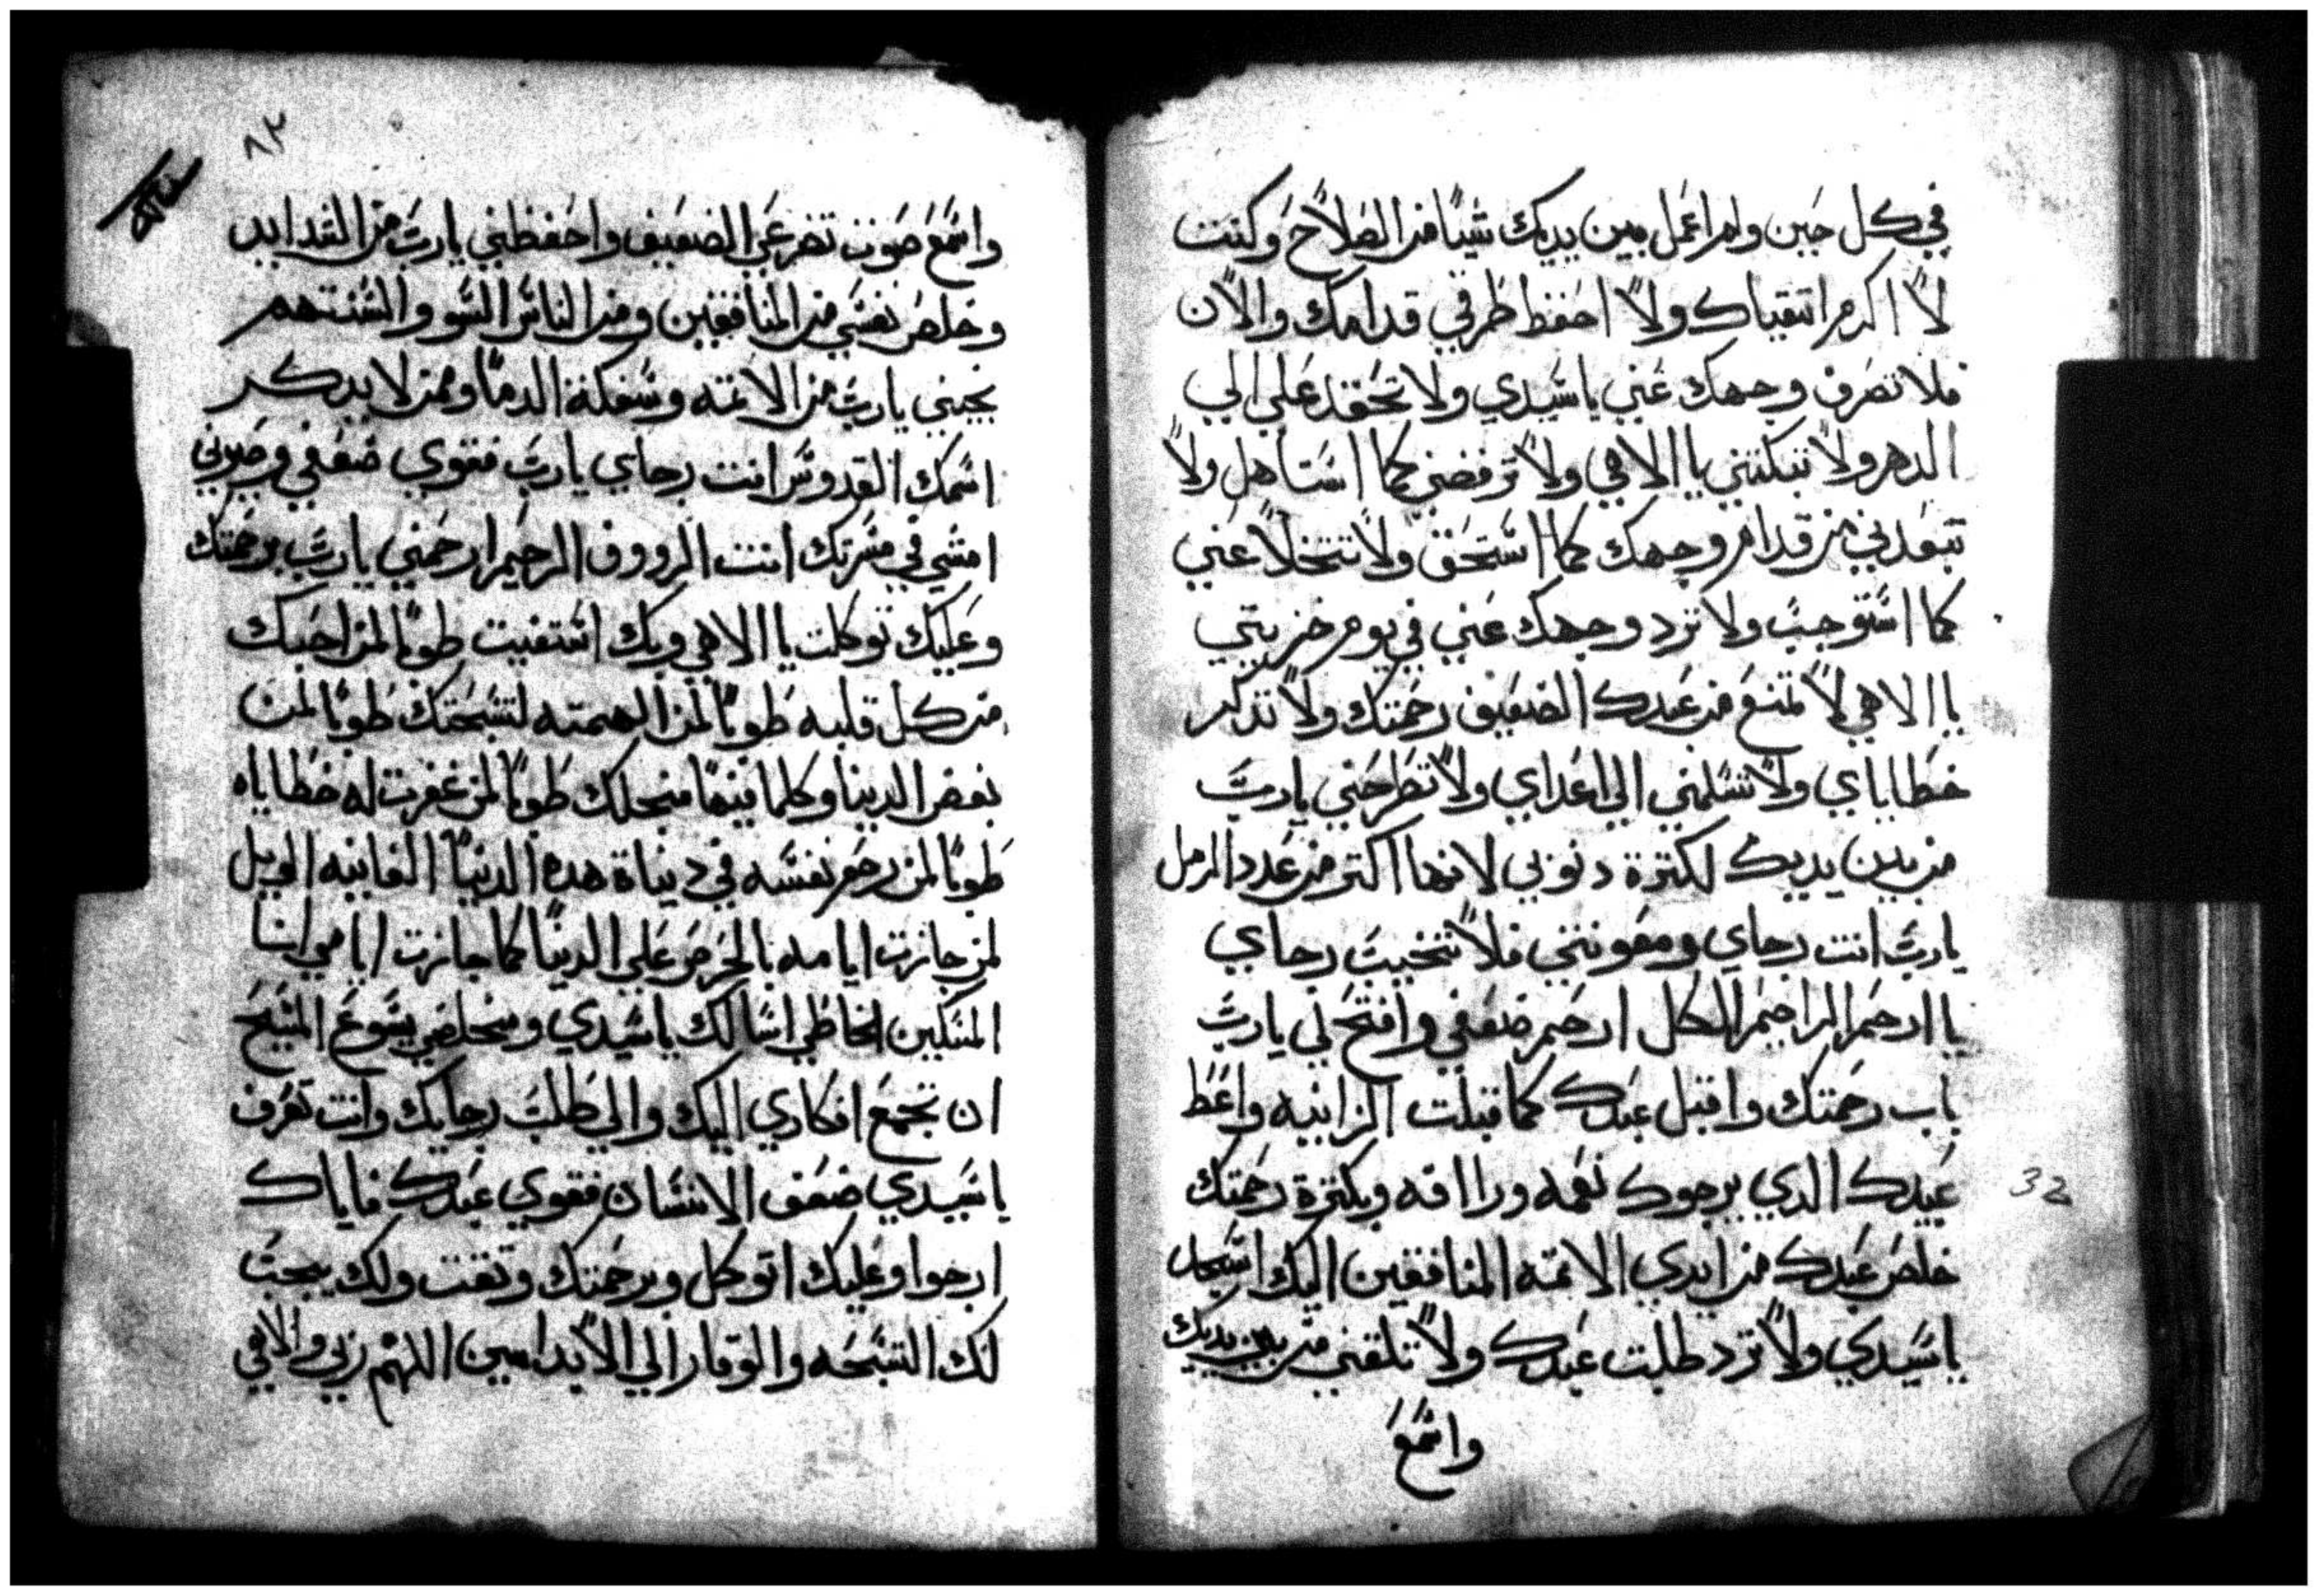 في كل حين ولم اعمل بين يديك شيا من الصلاح وكنت
لا اكرم اتقياك ولا احفظ طرقي قدامك والان
فلا تصرف وجهك عني يا سيدي ولا تحقد علي الي
الدهر ولا تبكتني يا الاهي ولا ترفضني كما استاهل ولا
تبعدني من قدام وجهك كما استحق ولا تتخلا عني
كما استوجب ولا ترد وجهك عني في يوم خزيتي
يا الاهي لا تمنع من عبدك الضعيف رحمتك ولا تذكر
خطاياي ولا تسلمني الي اعداي ولا تطرحني يا رب
من بين يديك لكترة دنوبي لانها اكتر من عدد الرمل
يا رب انت رجاي ومعونتي فلا تخيب رجاي
يا ارحم الراحم الكل ارحم ضعفي وافتح لي يا رب
باب رحمتك واقبل عبدك كما قبلت الزانيه واعط
عبيدك الدي يرجوك نعمه وراافه وبكترة رحمتك
خلص عبدك من ايدي الاتمه المنافقين اليك اتسجل
يا سيدي ولا ترد طلبت عبدك ولا تلقني من بين يديك
واسمع
٨٢
واسمع صوت تضرعي الضعيف واحفظني يا رب من الشدايد
وخلص نفسي من المنافقين ومن الناس السو والسنتهم
نجيني يا رب من الاتمه وسفكة الدما وممن لا يدكر
اسمك القدوس انت رجاي يا رب فقوي ضعفي وصيرني
امشي في مسرتك انت الرووف الرحيم ارحمني يا رب برحمتك
وعليك توكلت يا الاهي وبك استغيت طوبا لمن احبك
من كل قلبه طوبا لمن الهمته لتسبحتك طوبا لمن
بغض الدينا وكلما فيها منجلك طوبا لمن غفرت له خطاياه
طوبا لمن رحم نفسه في دياة هده الدنيا الفانيه الويل
لمن جازت ايامه بالحرص علي الدنيا كما جازت ايامي انا
المسكين الخاطي اسالك يا سيدي ومخلصي يسوع المسيح
ان تجمع افكاري اليك والي طلب رجايك وانت تعرف
يا سيدي ضعف الانسان فقوي عبدك فاياك
ارجوا وعليك اتوكل وبرحمتك وتقت ولك يجب
لك التسبحه والوقار الي الابد امين اللهم ربي والاهي
32